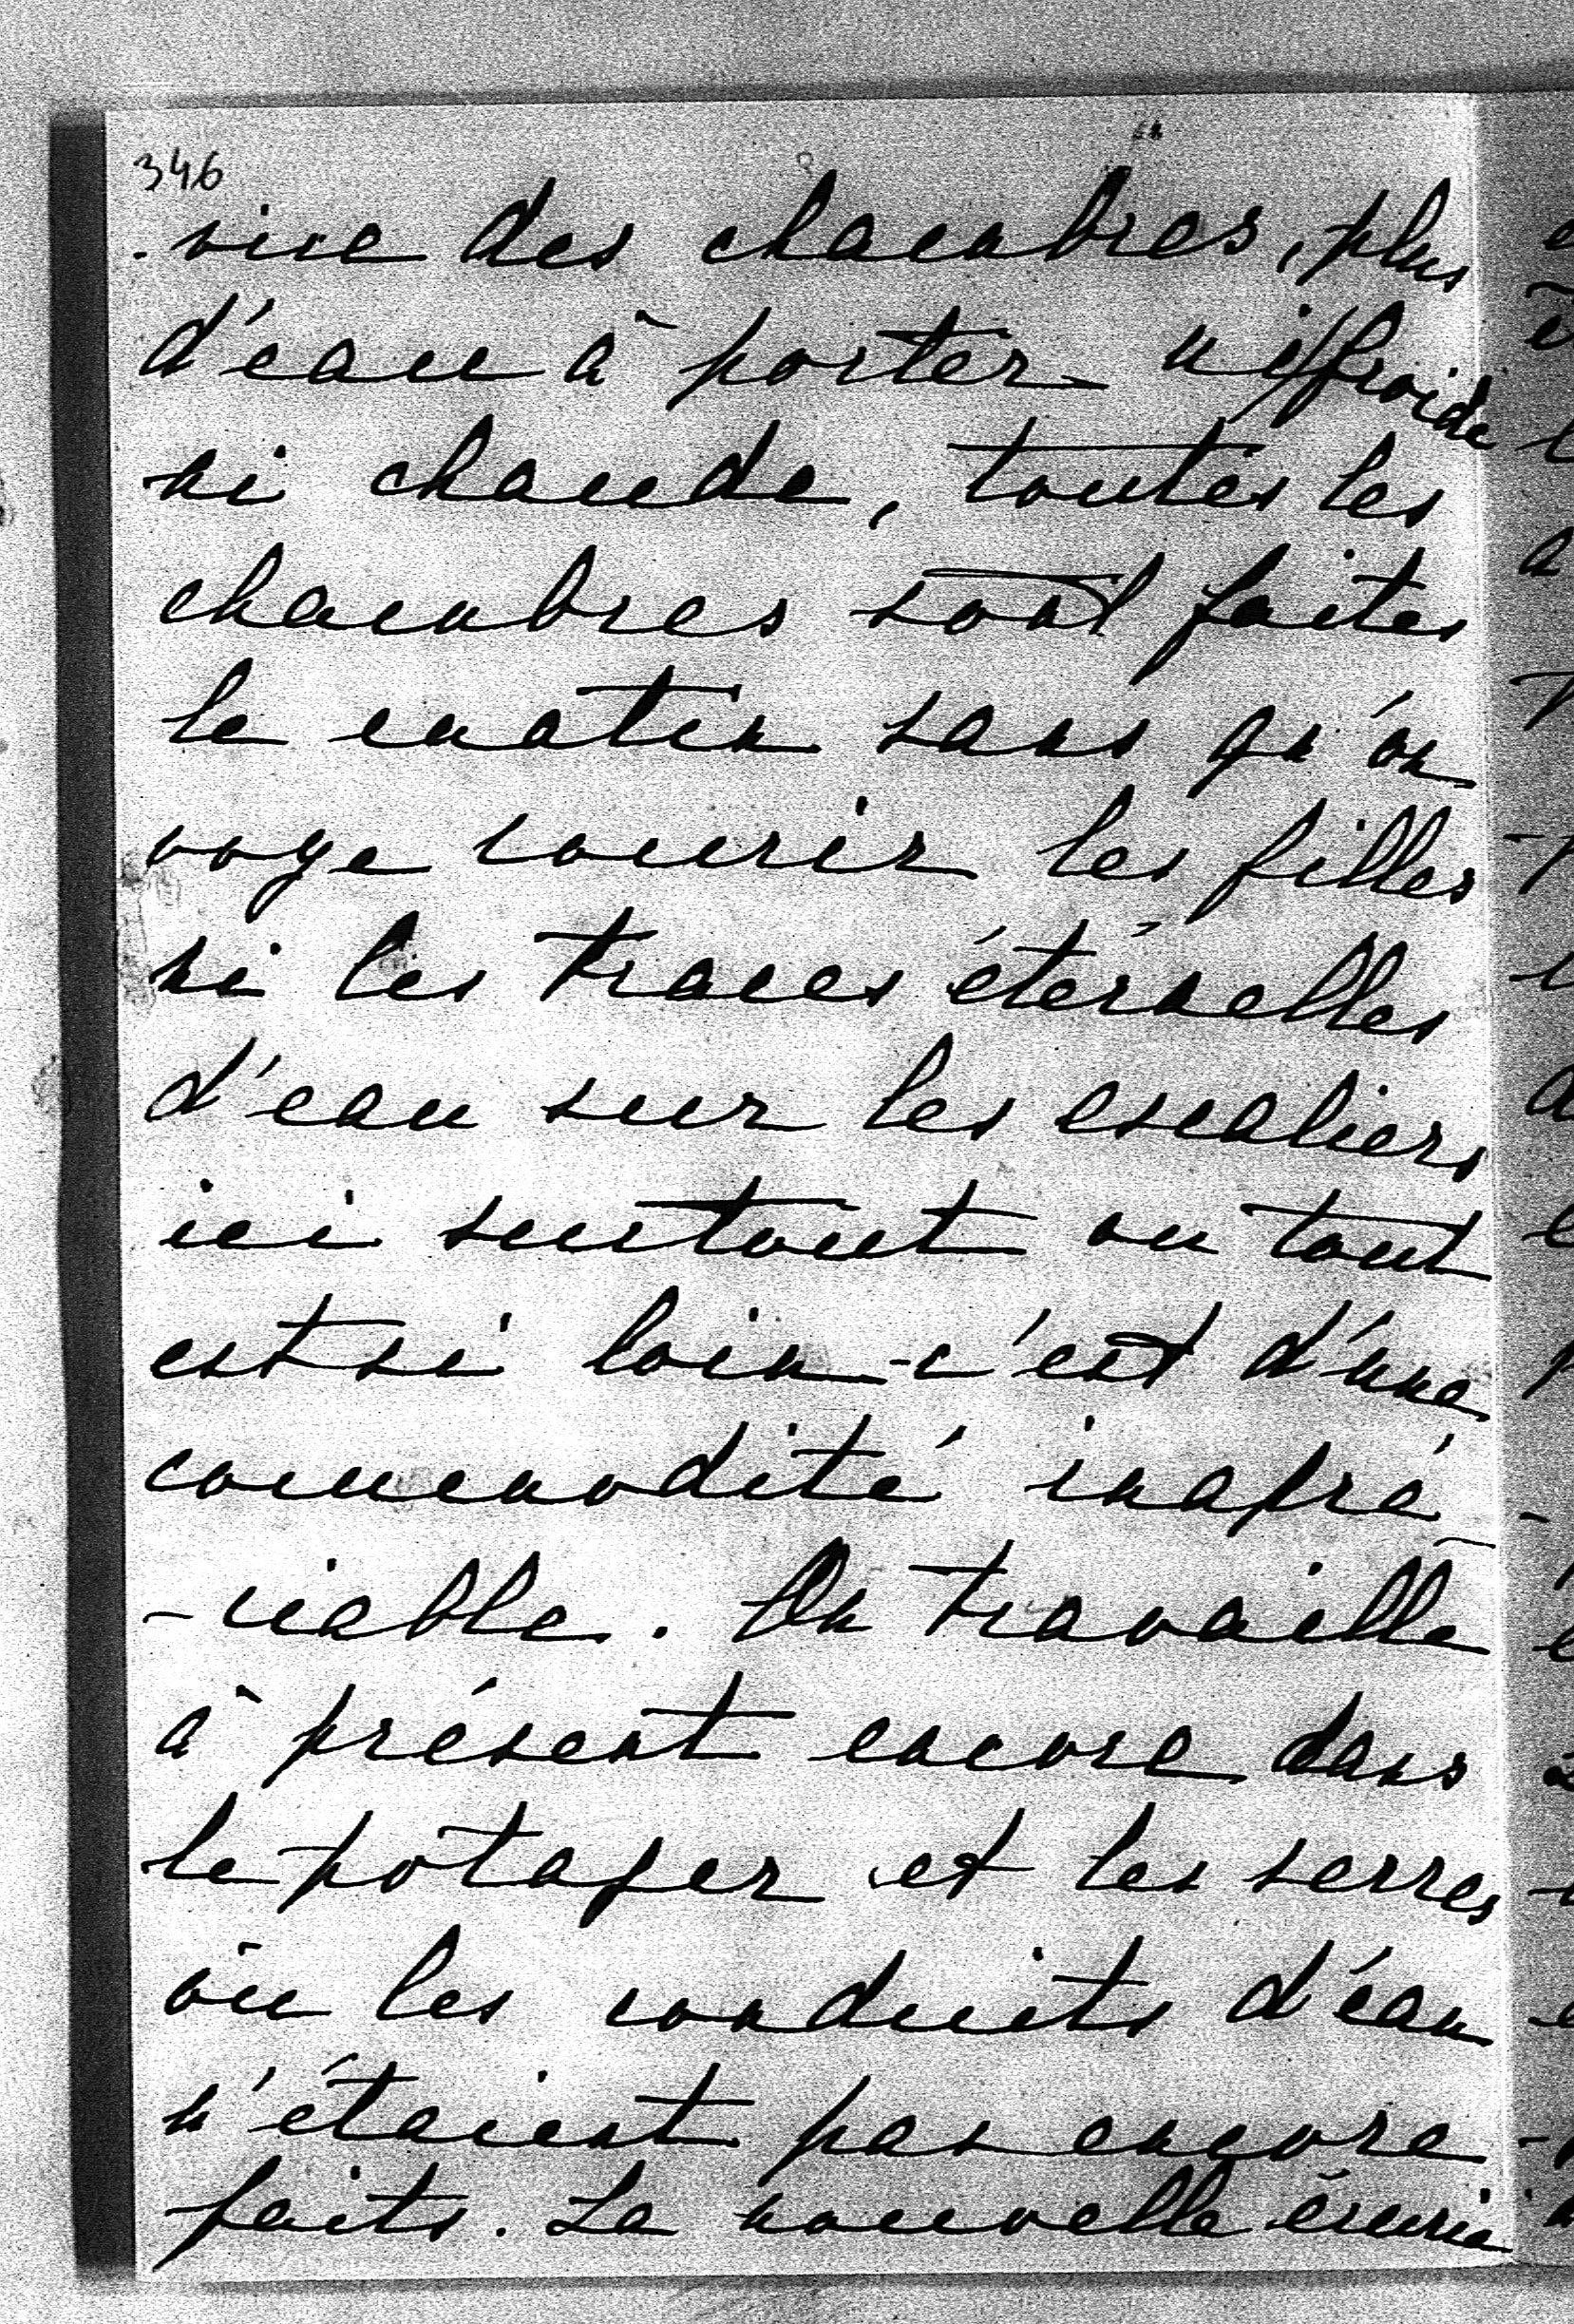 346
-vice des chambres, plus
d'eau à porter - ni froide
ni chaude, toutes les
chambres sont faites
le matin sans qu'on
voye courir les filles
ni les traces éternelles
d'eau sur les escaliers
ici surtout ou tout
est si loin - c'est d'une
commodité inapré-
-ciable. On travaille
à présent encore dans
le potager et les serres
où les conduits d'eau
n'étaient pas encore
faits. La nouvelle écurie